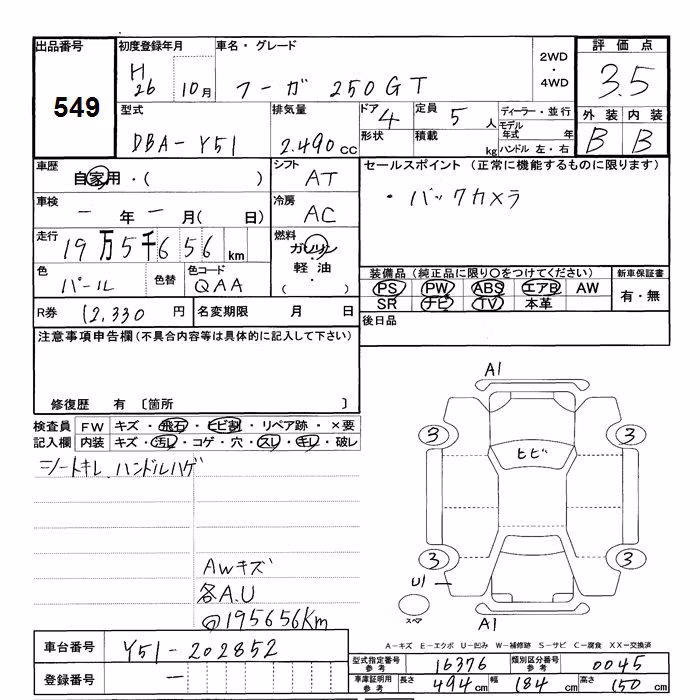 出品番号
549
初度登録年月
H
26 10月
車名・グレード
フーガ 250GT
2WD
・
4WD
評価点
3.5
型式
DBA-Y51
排気量
2.490 cc
ドア 4
形状
定員 5 人
積載 kg
ディーラー・並行
モデル
年式 年
ハンドル 左・右
外装 内装
B B
車歴
自家用・( )
シフト
AT
セールスポイント (正常に機能するものに限ります)
・バックカメラ
車検
- 年 - 月( 日)
冷房
AC
走行
19万5千656 km
燃料
ガソリン
・
軽油
( )
色
パール
色替
色コード
QAA
装備品 (純正品に限り○をつけてください)
PS PW ABS エアB AW
SR ナビ TV 本革
新車保証書
有・無
R券 12,330 円
名変期限 月 日
後日品
注意事項申告欄 (不具合内容等は具体的に記入して下さい)
修復歴 有 〔箇所 〕
検査員
記入欄
FW キズ・飛石・ヒビ割・リペア跡・×要
内装 キズ・汚レ・コゲ・穴・スレ・キレ・破レ
シートキレ、ハンドルハゲ
AWキズ
各A.U
@195656Km
A1
3 3
ヒビ
3 3
U1
スペア
A1
A-キズ E-エクボ U-凹み W-補修跡 S-サビ C-腐食 XX-交換済
車台番号 Y51-202852
登録番号 -
型式指定番号
参考
16376
類別区分番号
参考
0045
車庫証明用
参考
長さ 494 cm 幅 184 cm 高さ 150 cm